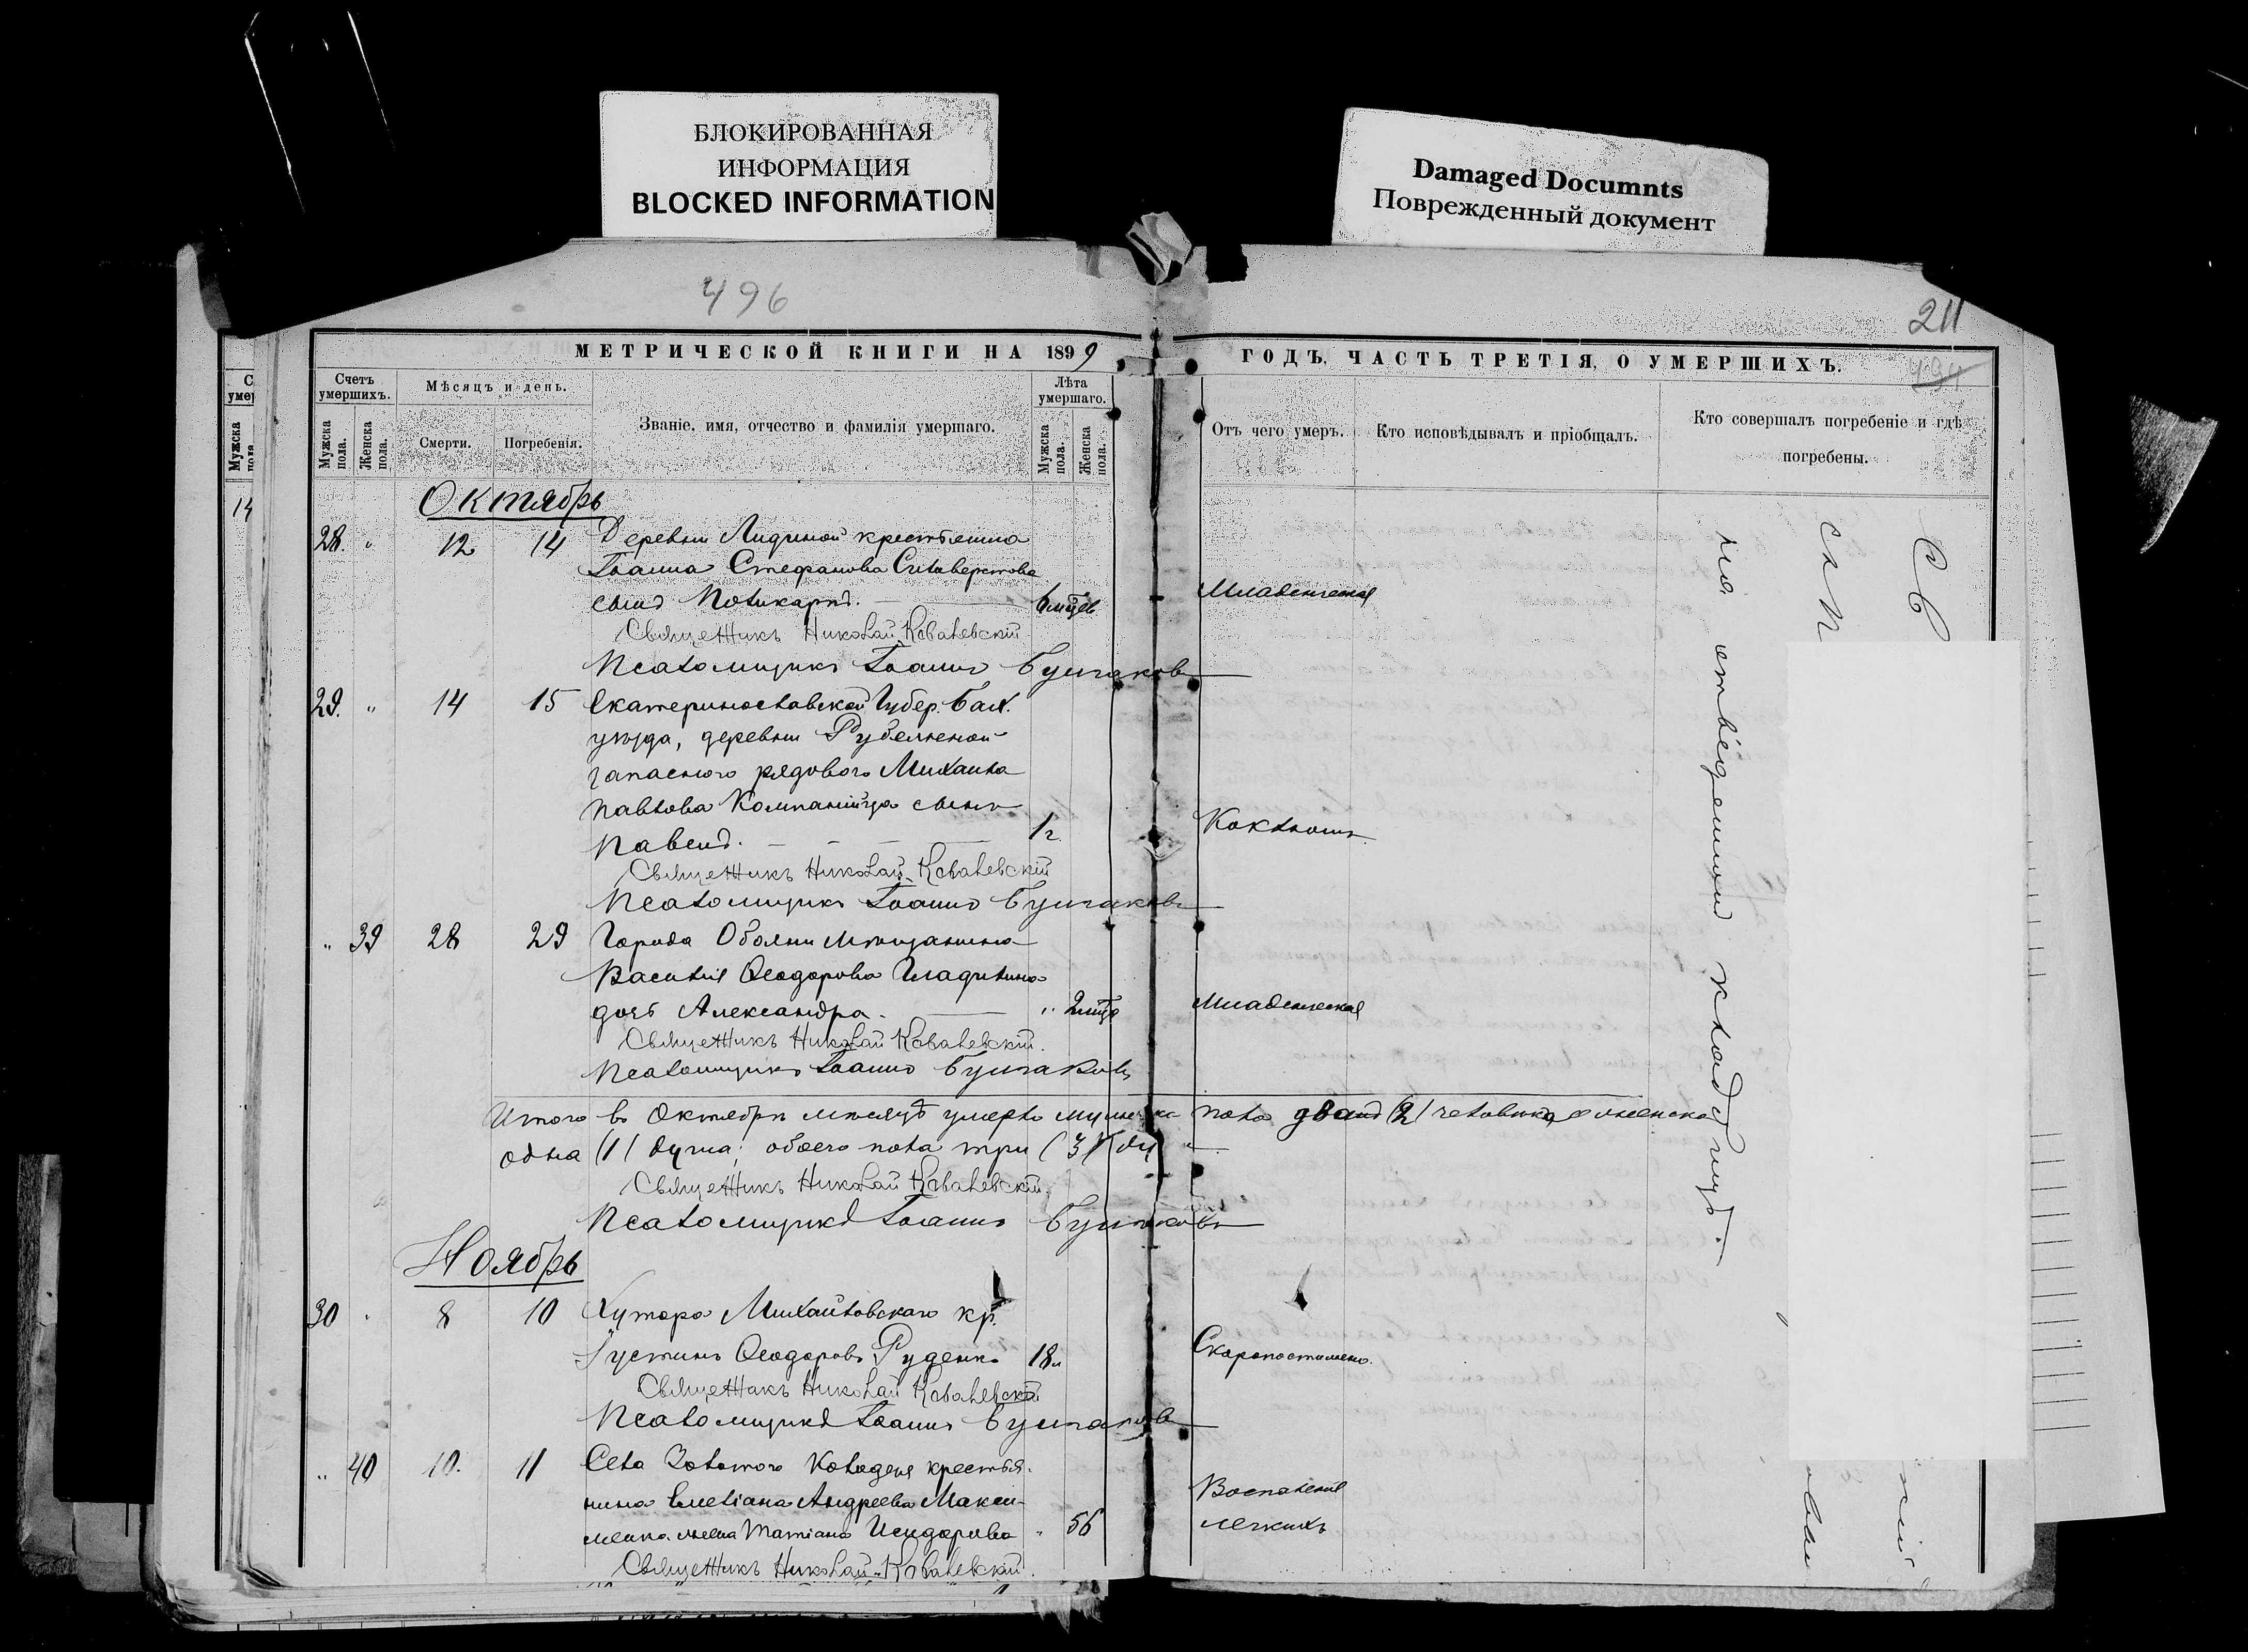 БЛОКИРОВАННАЯ
ИНФОРМАЦИЯ
BLOCKED INFORMATION
Damaged Documnts
Поврежденный документ
496
211
МЕТРИЧЕСКОЙ КНИГИ НА 1899
ГОДЪ, ЧАСТЬ ТРЕТІЯ, О УМЕРШИХЪ.
Счетъ умершихъ.
Мѣсяцъ и день.
Званіе, имя, отчество и фамилія умершаго.
Лѣта умершаго.
Мужска пола.
Женска пола.
Смерти.
Погребенія.
Мужска пола.
Женска пола.
Отъ чего умеръ.
Кто исповѣдывалъ и пріобщалъ.
Кто совершалъ погребеніе и гдѣ
погребены.
Октябрь
28. " 12 14 Деревни Лидиной крестьянина
Іоанна Стефанова Силиверстова
сынъ Поликарпъ. 6 мцев Младенческая
Священникъ Николай Ковалевскій
Псаломщикъ Іоаннъ Булгаковъ
29. " 14 15 Екатеринославской Губер. Бах.
уѣзда, деревни Рубежной
запаснаго рядового Михаила
Павлова Компанійца сынъ
Павелъ. 1 г. Коклюшъ.
Священникъ Николай Ковалевскій
Псаломщикъ Іоаннъ Булгаковъ
" 39 28 29 Города Обояни мѣщанина
Василія Ѳеодорова Гладилина
дочь Александра. " 2 мца Младенческая
Священникъ Николай Ковалевскій.
Псаломщикъ Іоаннъ Булгаковъ
Итого въ Октябрѣ мѣсяцѣ умерло мужеска пола два (2) человѣка, женска
одна (1) душа; обоего пола три (3) ду
Священникъ Николай Ковалевскій.
Псаломщикъ Іоаннъ Булгаковъ
Ноябрь
30 " 8 10 Хутора Михайловскаго кр.
Іустинъ Ѳеодоровъ Руденко 18 л Скоропостижно.
Священникъ Николай Ковалевскій
Псаломщикъ Іоаннъ Булгаковъ
" 40 10. 11 Села Золотого Колодезя крестья-
нина Емеліана Андреева Макси-
менка жена Татіана Исидорова " 56 Воспаленіе
легкихъ
Священникъ Николай Ковалевскій.
на отведенномъ кладбищѣ.